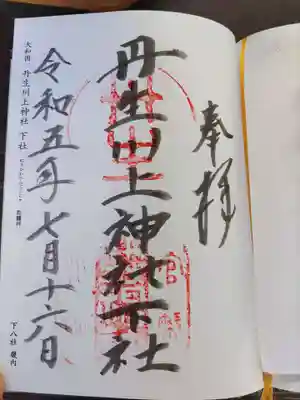 奉拝
丹生川上神社下社
令和五年七月十六日
大和国 丹生川上神社 下社
下八社 畿内